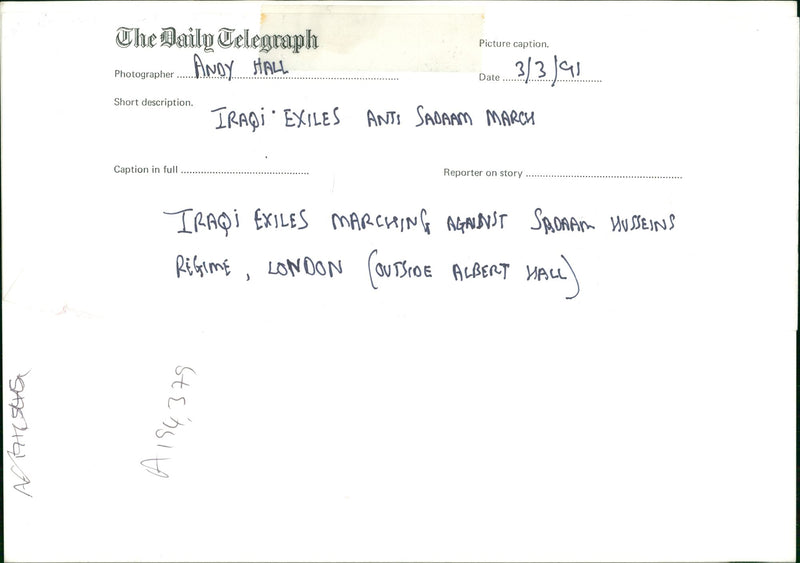 The Daily Telegraph
Picture caption.
Photographer ANDY HALL
Date 3/3/91
Short description.
IRAQi EXILES ANTI SADAAM MARCH
Caption in full
Reporter on story
IRAQi EXILES MARCHING AGAINST SADAAM HUSSEINS
REGIME, LONDON (OUTSIDE ALBERT HALL)
A194,379